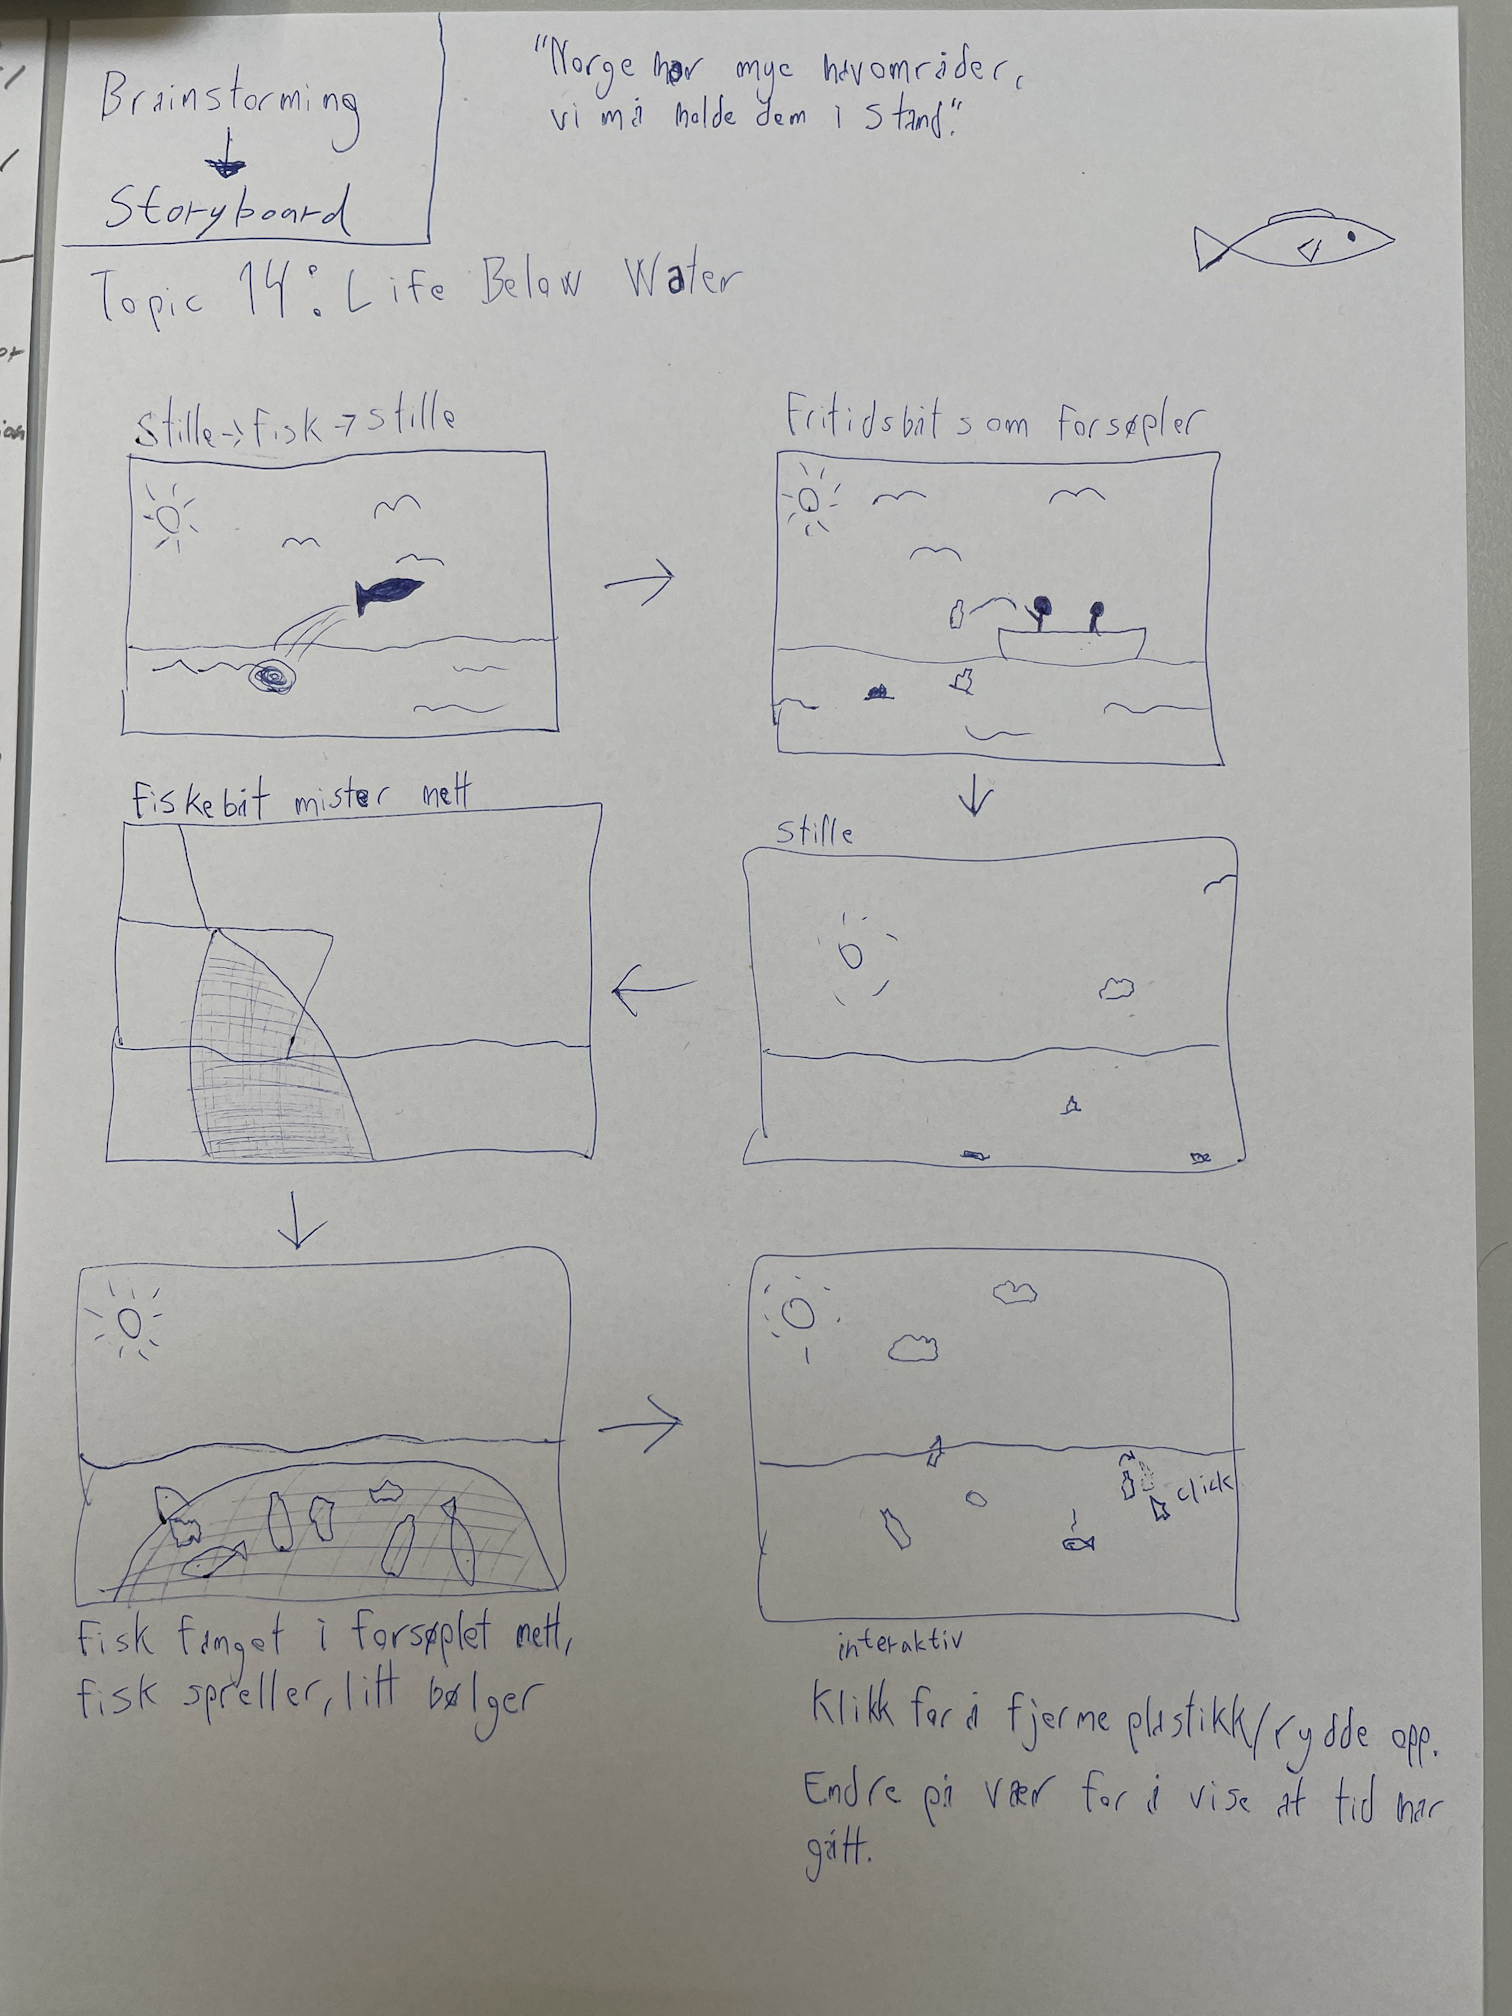 Brainstorming
Storyboard
"Norge har mye havområder,
vi må holde dem i stand."
Topic 14: Life Below Water
Stille → fisk → stille
Fritidsbåt som forsøpler
Stille
Fiskebåt mister nett
Fisk fanget i forsøplet nett,
fisk spreller, litt bølger
click
interaktiv
Klikk for å fjerne plastikk/rydde opp.
Endre på vær for å vise at tid har
gått.